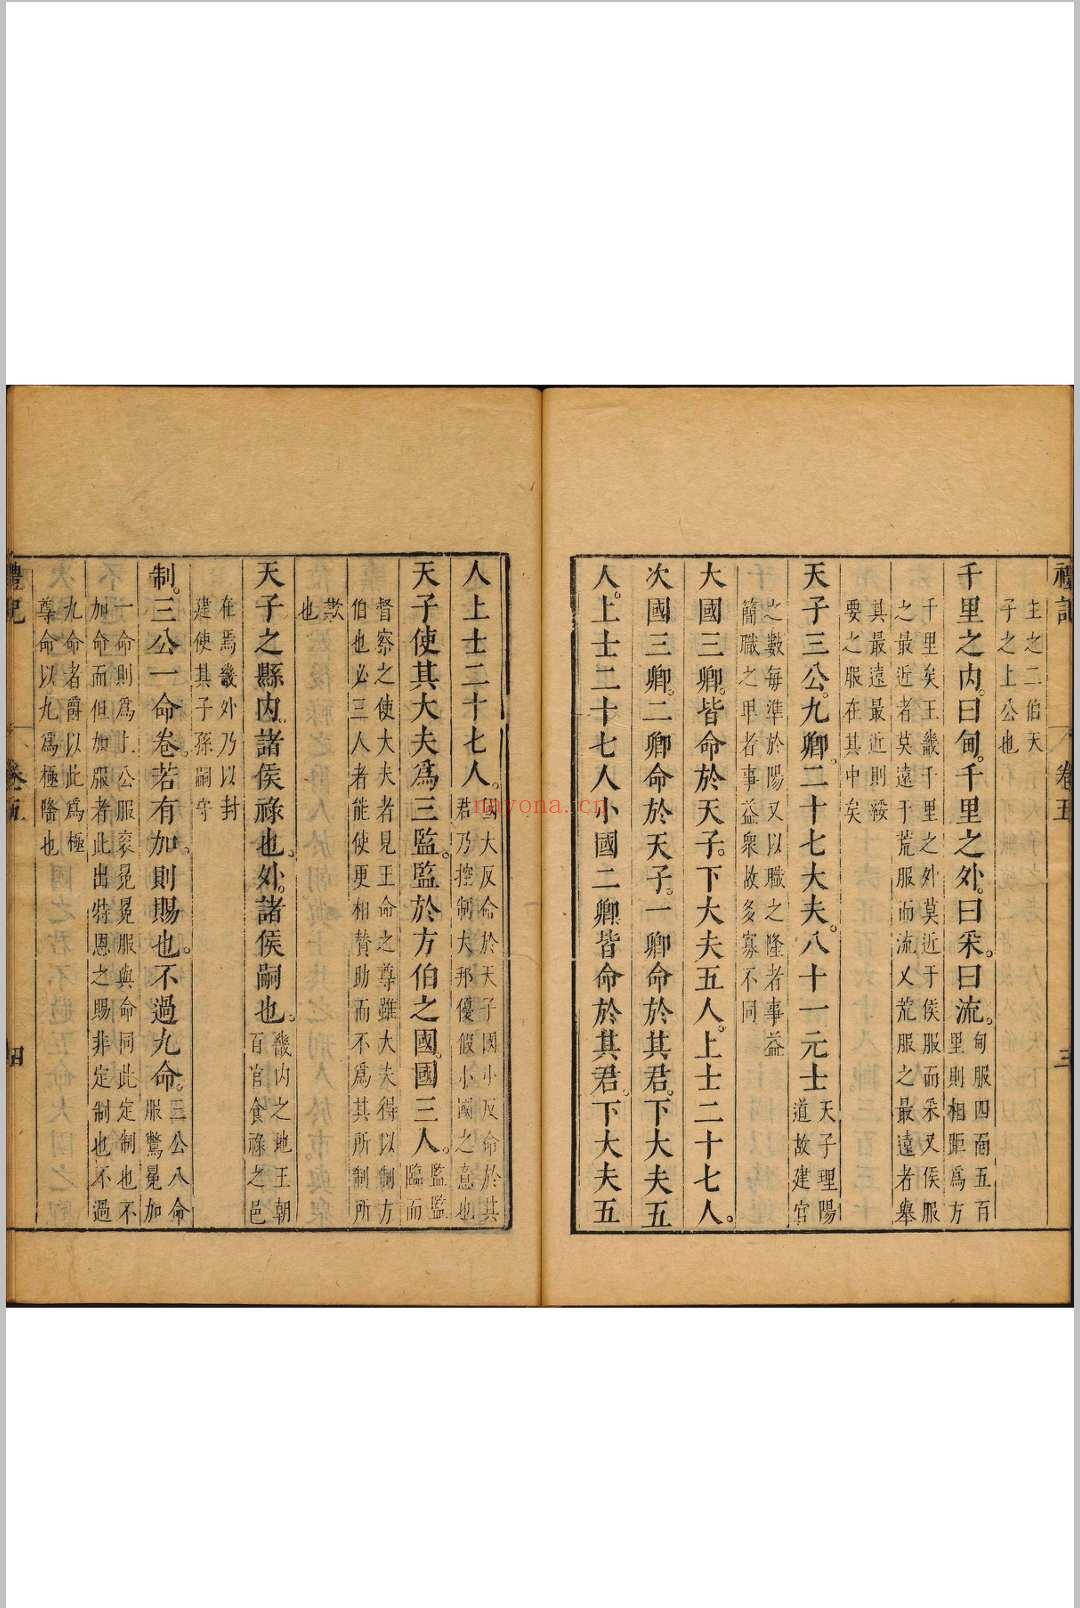 禮記
卷五
三
主之二伯天
子之上公也
千里之内。曰甸。千里之外。曰采。曰流。
甸服四面五百
里則相距爲方
千里矣王畿千里之外莫近于侯服而采又侯服
之最近者莫遠于荒服而流又荒服之最遠者舉
其最遠最近則綏
要之服在其中矣
天子三公。九卿。二十七大夫。八十一元士
天子理陽
道故建官
之數每準於陽又以職之隆者事益
簡職之卑者事益衆故多寡不同
大國三卿。皆命於天子。下大夫五人。上士二十七人。
次國三卿。二卿命於天子。一卿命於其君。下大夫五
人。上士二十七人小國二卿皆命於其君。下大夫五
人上士二十七人。
國大反命於天子國小反命於其
君乃控制大邦優假小國之意也
天子使其大夫爲三監。監於方伯之國。國三人。
監監
臨而
督察之使大夫者見王命之尊雖大夫得以制方
伯也必三人者能使更相贊助而不爲其所制所
歟
也
天子之縣内。諸侯祿也。外。諸侯嗣也。
畿内之地王朝
百官食祿之邑
在焉畿外乃以封
建使其子孫嗣守
制。三公一命卷。若有加。則賜也。不過九命。
三公八命
服鷩冕加
一命則爲上公服衮冕冕服與命同此定制也不
加命而但加服者此出特恩之賜非定制也不過
九命者爵以此爲極
尊命以九爲極隆也
禮記
卷五
四
nuyona.cn